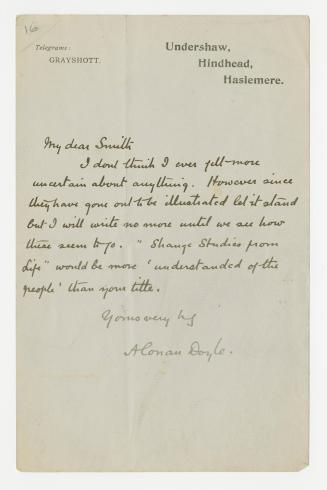 16
Telegrams: Undershaw,
GRAYSHOTT. Hindhead,
Haslemere.
My dear Smith
I dont think I ever felt more
uncertain about anything. However since
they have gone out to be illustrated let it stand
but I will write no more until we see how
these seem to go. "Strange Studies from
Life" would be more 'understanded of the
people' than your title.
Yours very
A Conan Doyle.